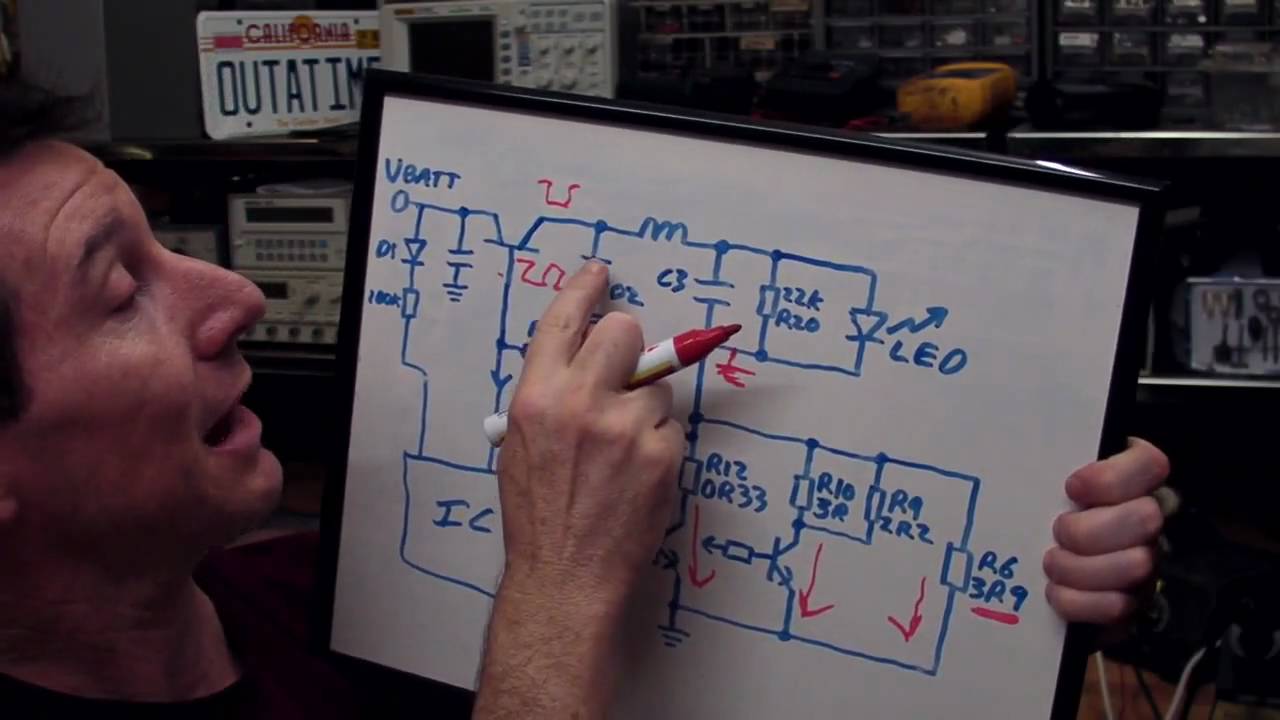 CALIFORNIA
OUTATIM
VBATT
D1
100K
D2
C3
22K
R20
LED
IC
R12
0R33
R10
3R
R9
2R2
R6
3R9